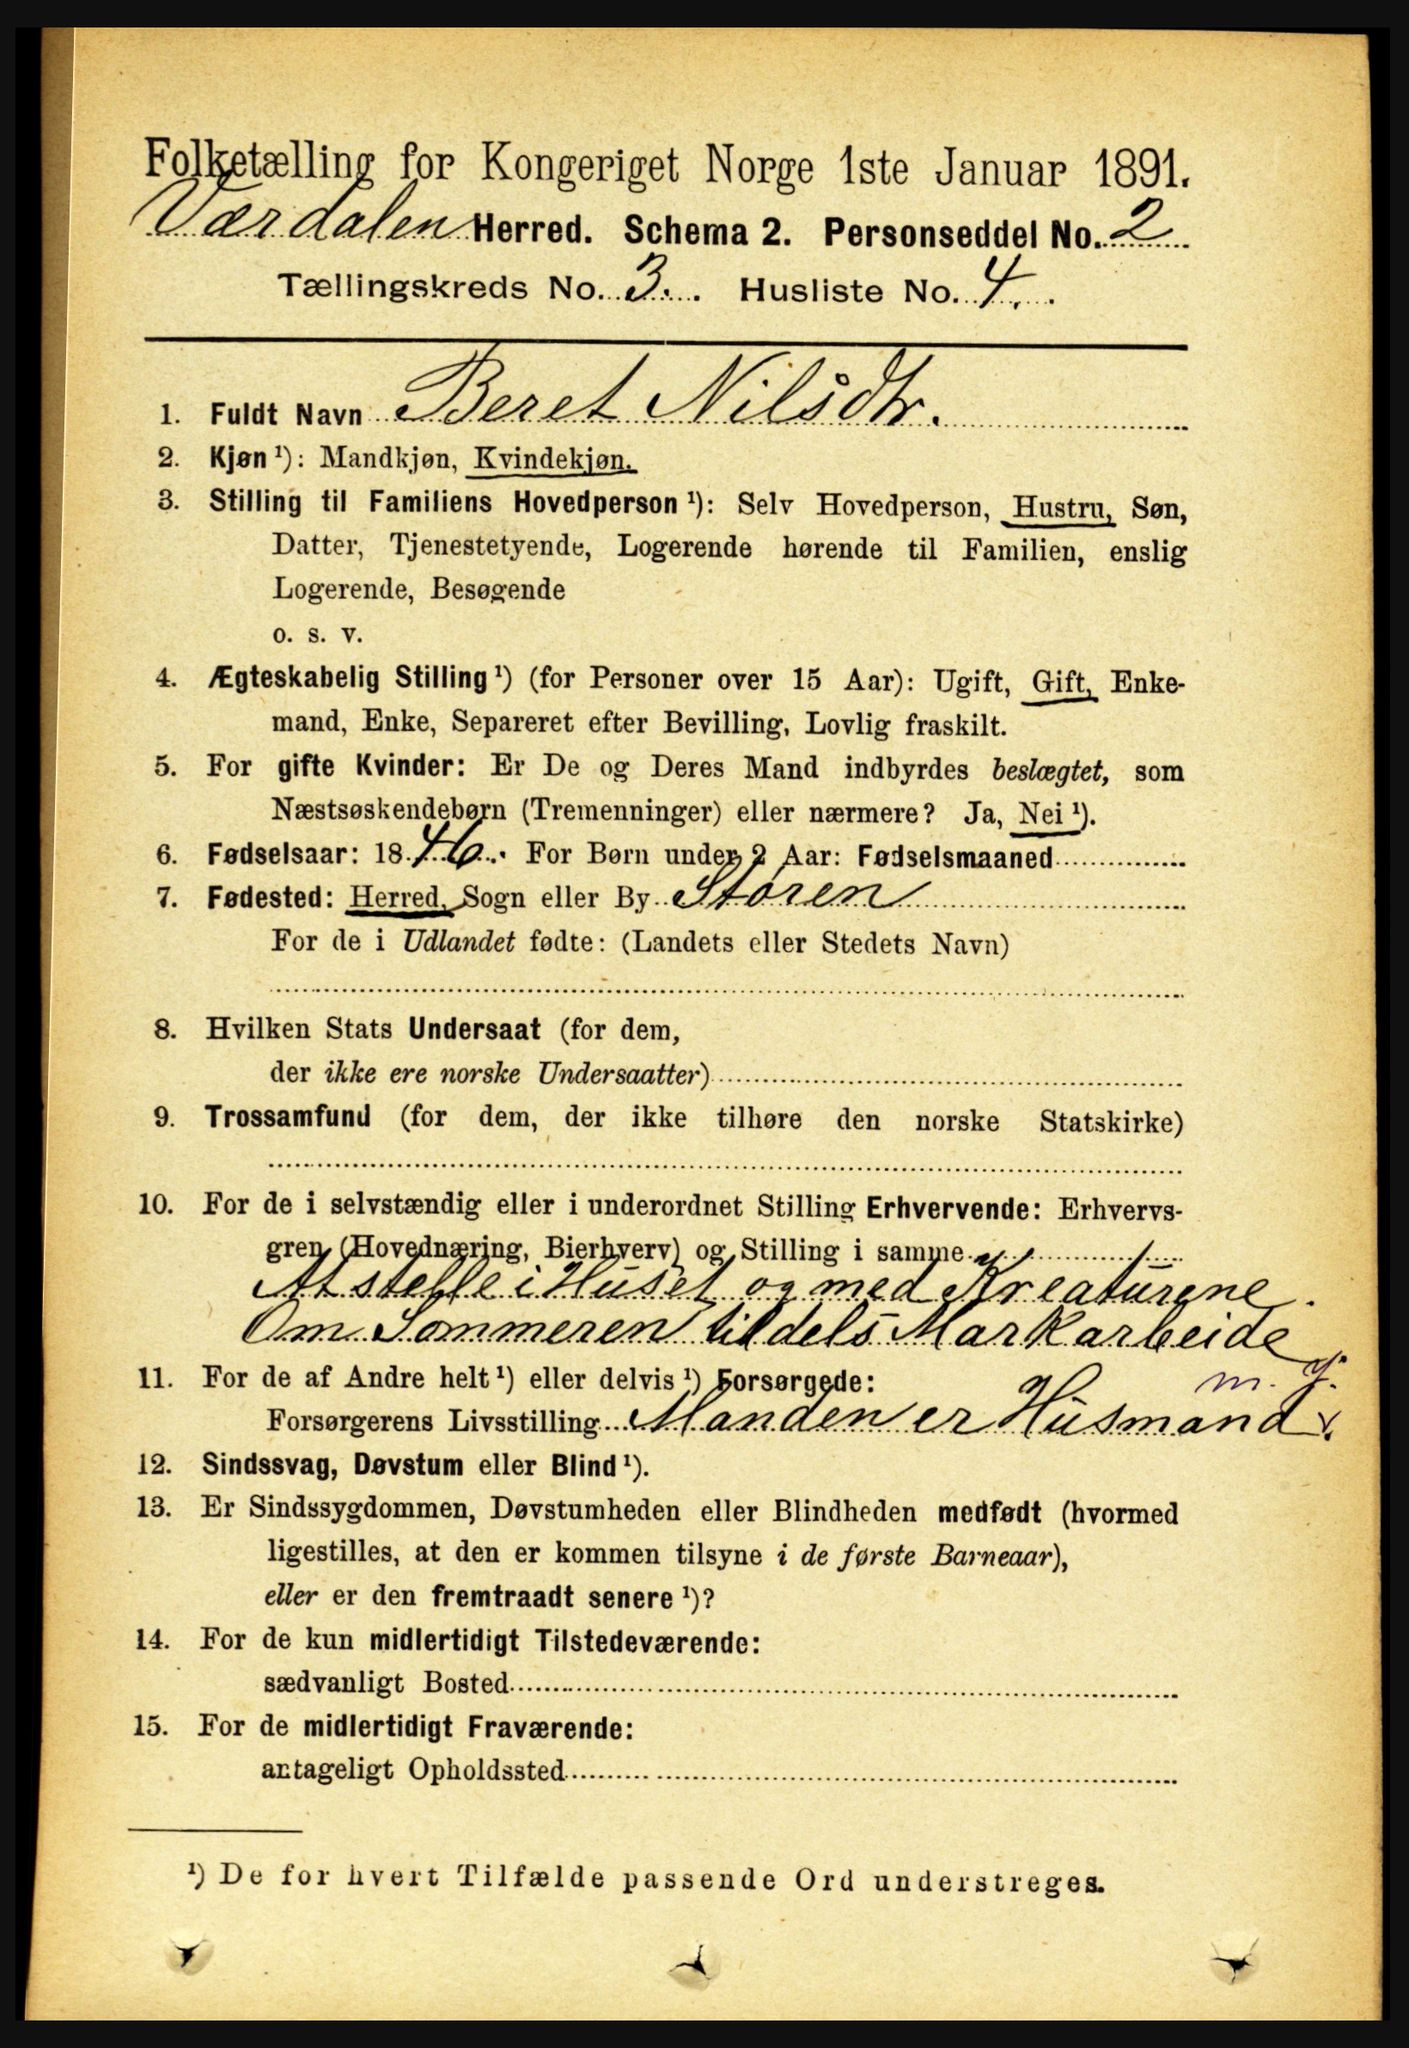 Folketælling for Kongeriget Norge 1ste Januar 1891.
Værdalen Herred. Schema 2. Personseddel No. 2
Tællingskreds No. 3. Husliste No. 4.
1. Fuldt Navn Beret Nilsdtr.
2. Kjøn ¹): Mandkjøn, Kvindekjøn.
3. Stilling til Familiens Hovedperson ¹): Selv Hovedperson, Hustru, Søn,
Datter, Tjenestetyende, Logerende hørende til Familien, enslig
Logerende, Besøgende
o. s. v.
4. Ægteskabelig Stilling ¹) (for Personer over 15 Aar): Ugift, Gift, Enke-
mand, Enke, Separeret efter Bevilling, Lovlig fraskilt.
5. For gifte Kvinder: Er De og Deres Mand indbyrdes beslægtet, som
Næstsøskendebørn (Tremenninger) eller nærmere? Ja, Nei ¹).
6. Fødselsaar: 1846. For Børn under 2 Aar: Fødselsmaaned
7. Fødested: Herred, Sogn eller By Støren
For de i Udlandet fødte: (Landets eller Stedets Navn)
8. Hvilken Stats Undersaat (for dem,
der ikke ere norske Undersaatter)
9. Trossamfund (for dem, der ikke tilhøre den norske Statskirke)
10. For de i selvstændig eller i underordnet Stilling Erhvervende: Erhvervs-
gren (Hovednæring, Bierhverv) og Stilling i samme
At stelle i Huset og med Kreaturene.
Om Sommeren tildels Markarbeide
11. For de af Andre helt ¹) eller delvis ¹) Forsørgede: m. j.
Forsørgerens Livsstilling Manden er Husmand
12. Sindssvag, Døvstum eller Blind ¹).
13. Er Sindssygdommen, Døvstumheden eller Blindheden medfødt (hvormed
ligestilles, at den er kommen tilsyne i de første Barneaar),
eller er den fremtraadt senere ¹)?
14. For de kun midlertidigt Tilstedeværende:
sædvanligt Bosted
15. For de midlertidigt Fraværende:
antageligt Opholdssted
¹) De for hvert Tilfælde passende Ord understreges.